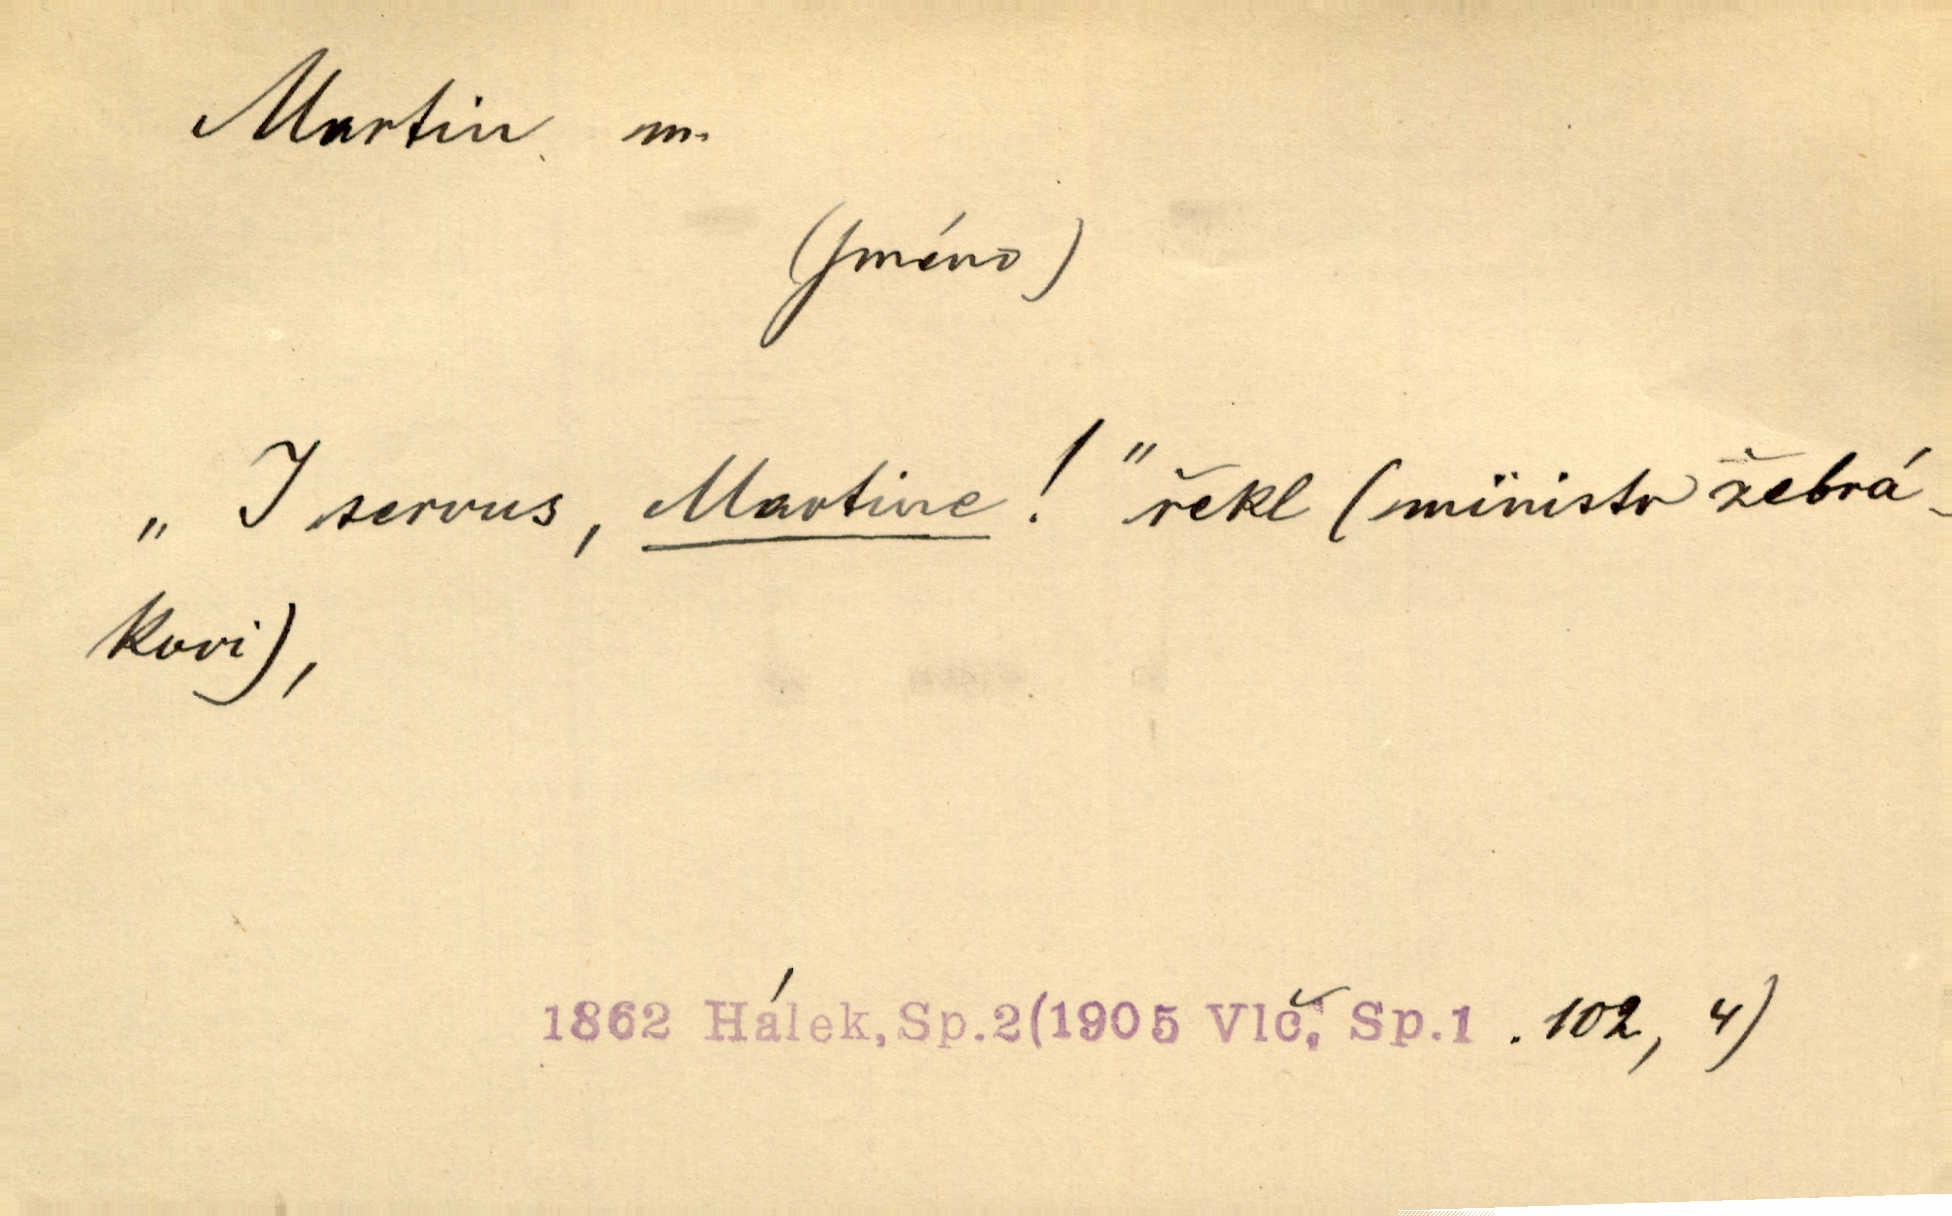 Martin m.
(jméno)
„I servus, Martine!" řekl (ministr žebrá-
kovi),
1862 Hálek, Sp.2(1905 Vlč., Sp.1 . 102, 4)